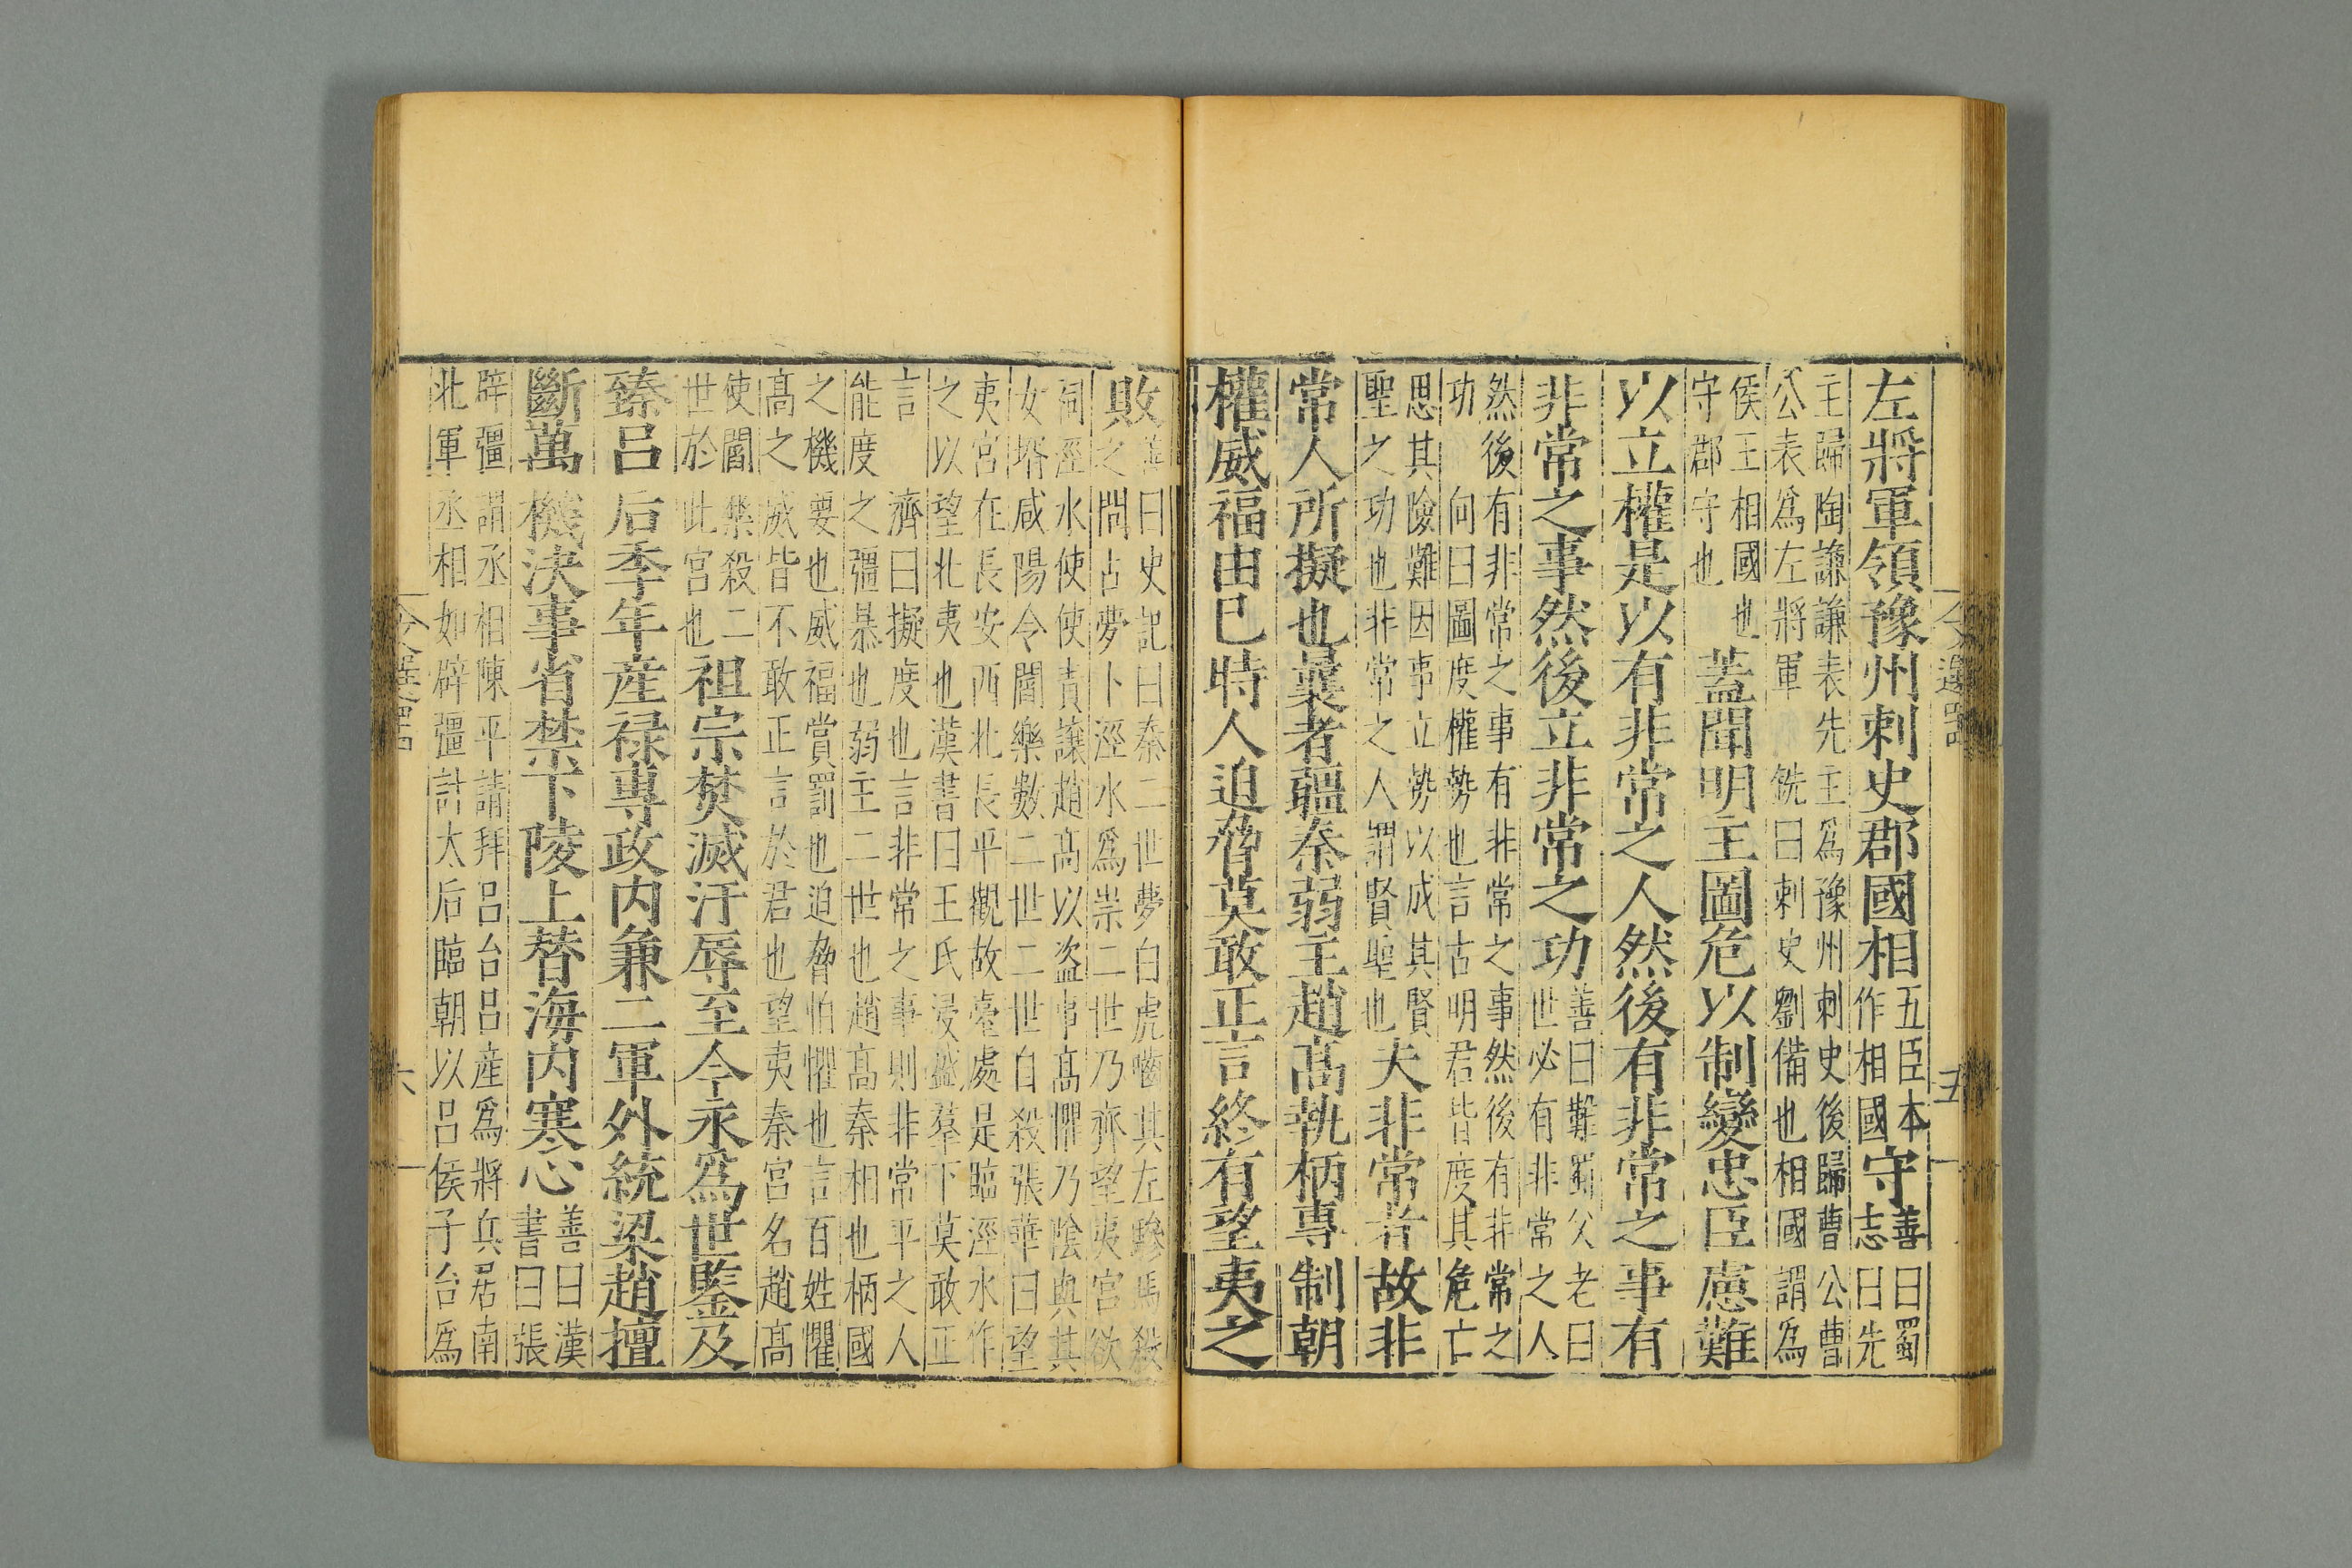 左將軍領豫州刺史郡國相五臣本作相國守善曰蜀志曰先
主歸陶謙謙表先主爲豫州刺史後歸曹公曹
公表爲左將軍 銑曰刺史劉備也相國謂爲
侯王相國也
守郡守也 蓋聞明主圖危以制變忠臣慮難
以立權是以有非常之人然後有非常之事有
非常之事然後立非常之功善曰難蜀父老曰世必有非常之人
然後有非常之事有非常之事然後有非常之
功 向曰圖度權勢也言古明君皆度其危亡
思其險難因事立勢以成其賢
聖之功也非常之人謂賢聖也夫非常者故非
常人所擬也曩者疆秦弱主趙高執柄專制朝
權威福由巳時人迫脅莫敢正言終有望夷之
敗善曰史記曰秦二世夢白虎嚙其左驂馬殺
之問占夢卜涇水爲祟二世乃齊望夷宮欲
祠涇水使使責讓趙高以盗事高懼乃陰與其
女壻咸陽令閻樂數二世二世自殺張華曰望
夷宮在長安西北長平觀故臺處是臨涇水作
之以望北夷也漢書曰王氏浸盛羣下莫敢正
言 濟曰擬度也言非常之事則非常平之人
能度之彊暴也弱主二世也趙高秦相也柄國
之機要也威福賞罰也迫脅怕懼也言百姓懼
高之威皆不敢正言於君也望夷秦宮名趙高
使閻樂殺二
世於此宮也祖宗焚滅汙辱至今永爲世鑒及
臻吕后季年産禄專政内兼二軍外統梁趙擅
斷萬機決事省禁下陵上替海内寒心善曰漢書曰張
辟彊謂丞相陳平請拜吕台吕産爲將兵居南
北軍丞相如辟彊計太后臨朝以吕侯子台爲
六